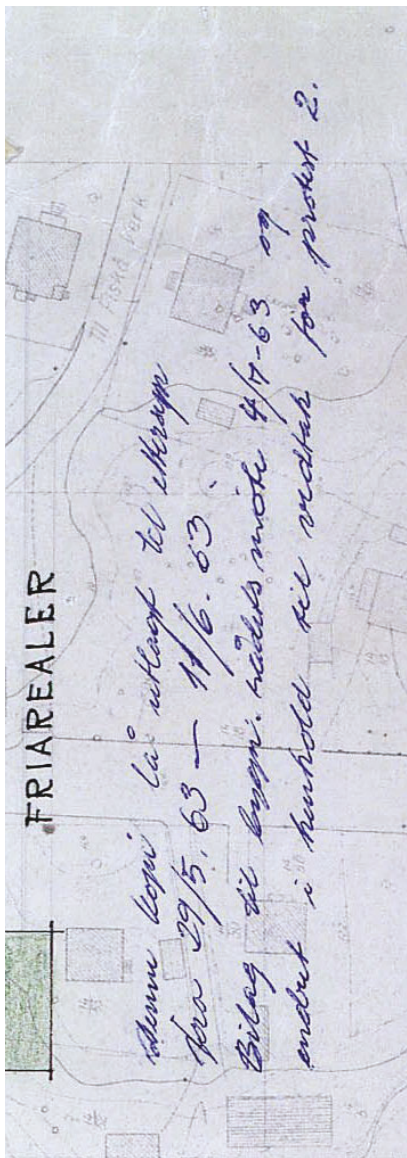 FRIAREALER
Til Fiskå Verk
Denne kopi lå utlagt til ettersyn
fra 29/5. 63 — 11/6. 63.
Bilag til bygn. rådets møte 4/7-63 og
endret i henhold til vedtak for protest 2.